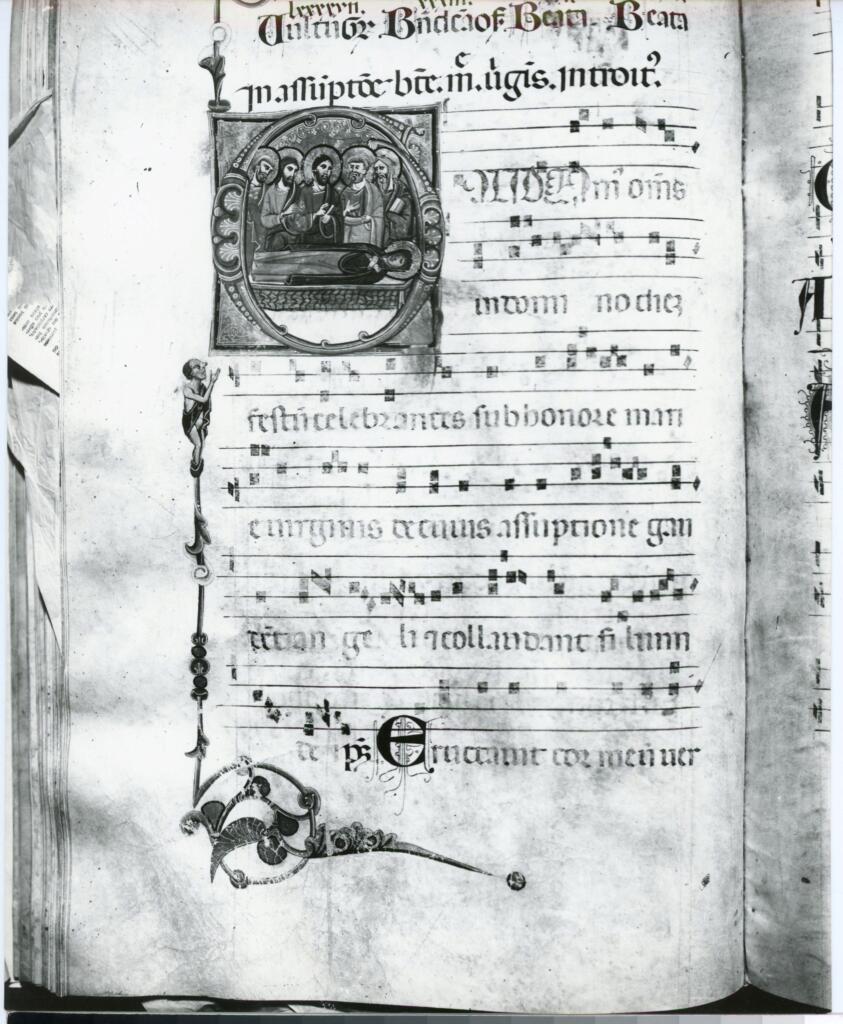 Vultū Gr̄. Bn̄dca of̄. Beata. Beata
In assuptōe btē. m̄. ūgis. Introit᷒.
in domi no diez
festū celebrantes sub honore mari
e uirginis de cuius assuptione gau
dēt an ge li ⁊ collaudant filium
de p̄s Eructauit cor meū uer